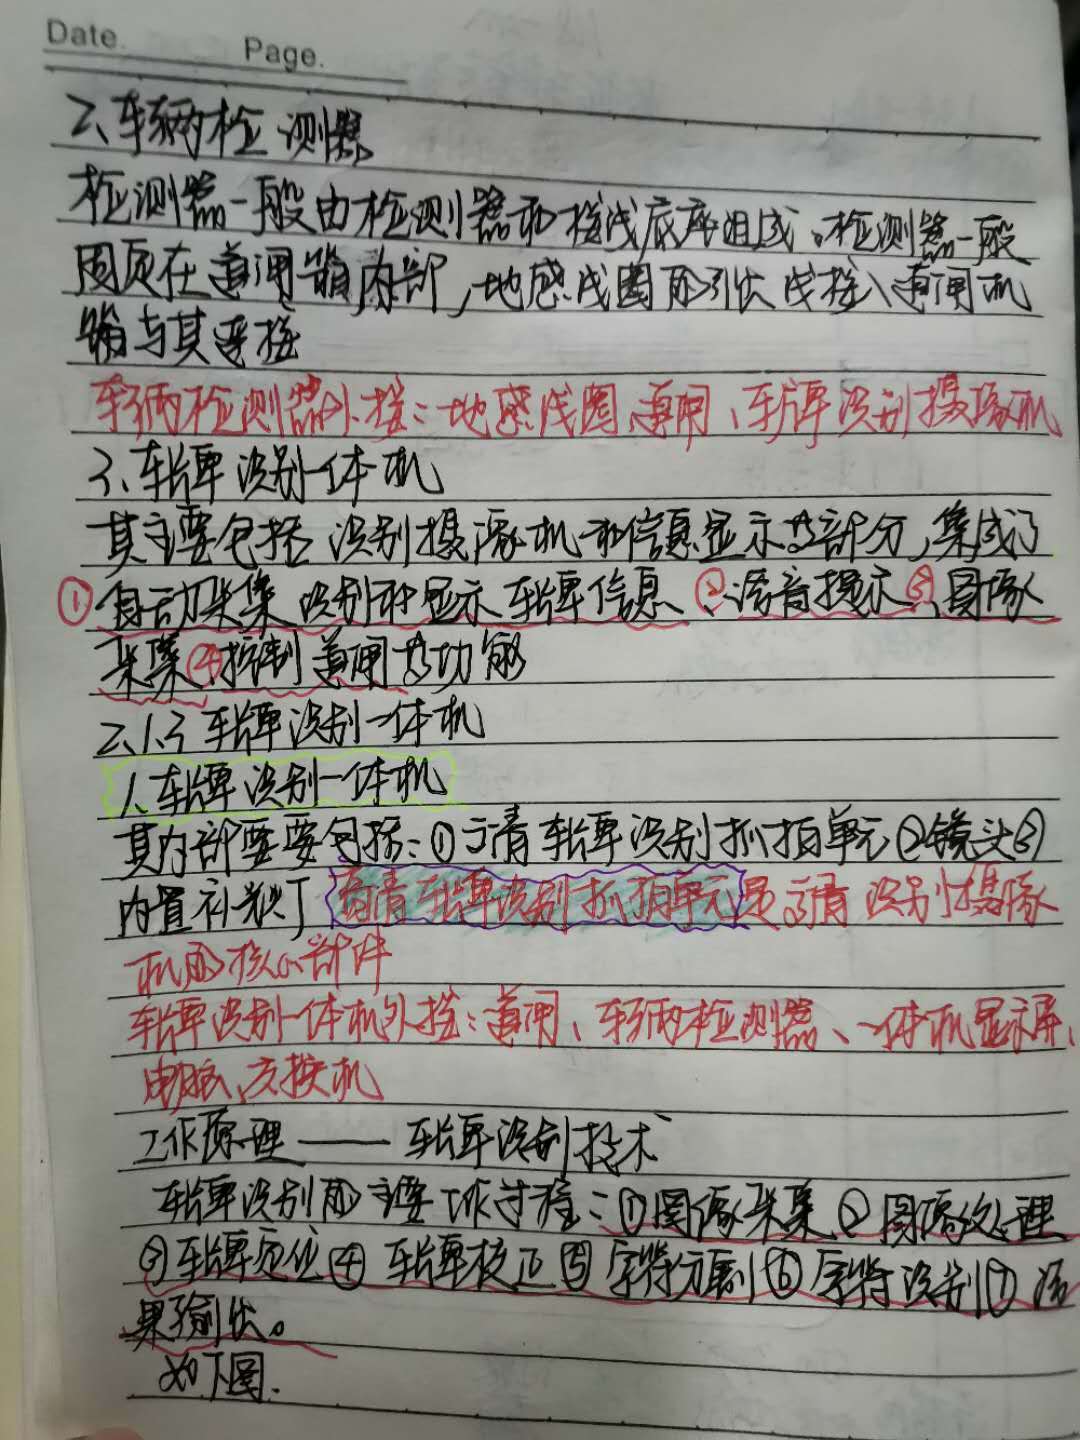 Date.
Page.
2、车辆检测器
检测器一般由检测器和接线底座组成。检测器一般
固定在道闸箱内部,地感线圈的引出线接入道闸机
箱与其连接
车辆检测器外接:地感线圈、道闸、车牌识别摄像机
3、车牌识别一体机
其主要包括识别摄像机和信息显示等部分,集成了
①自动采集识别和显示车牌信息②、语音提示③、图像
采集④控制道闸等功能
2.1.3 车牌识别一体机
1、车牌识别一体机
其内部主要包括:①高清车牌识别抓拍单元②镜头③
内置补光灯 高清车牌识别抓拍单元是高清识别摄像
机的核心部件
车牌识别一体机外接:道闸、车辆检测器、一体机显示屏、
电脑、交换机
工作原理——车牌识别技术
车牌识别的主要工作过程:①图像采集②图像处理
③车牌定位④车牌校正⑤字符分割⑥字符识别⑦结
果输出。
如下图.